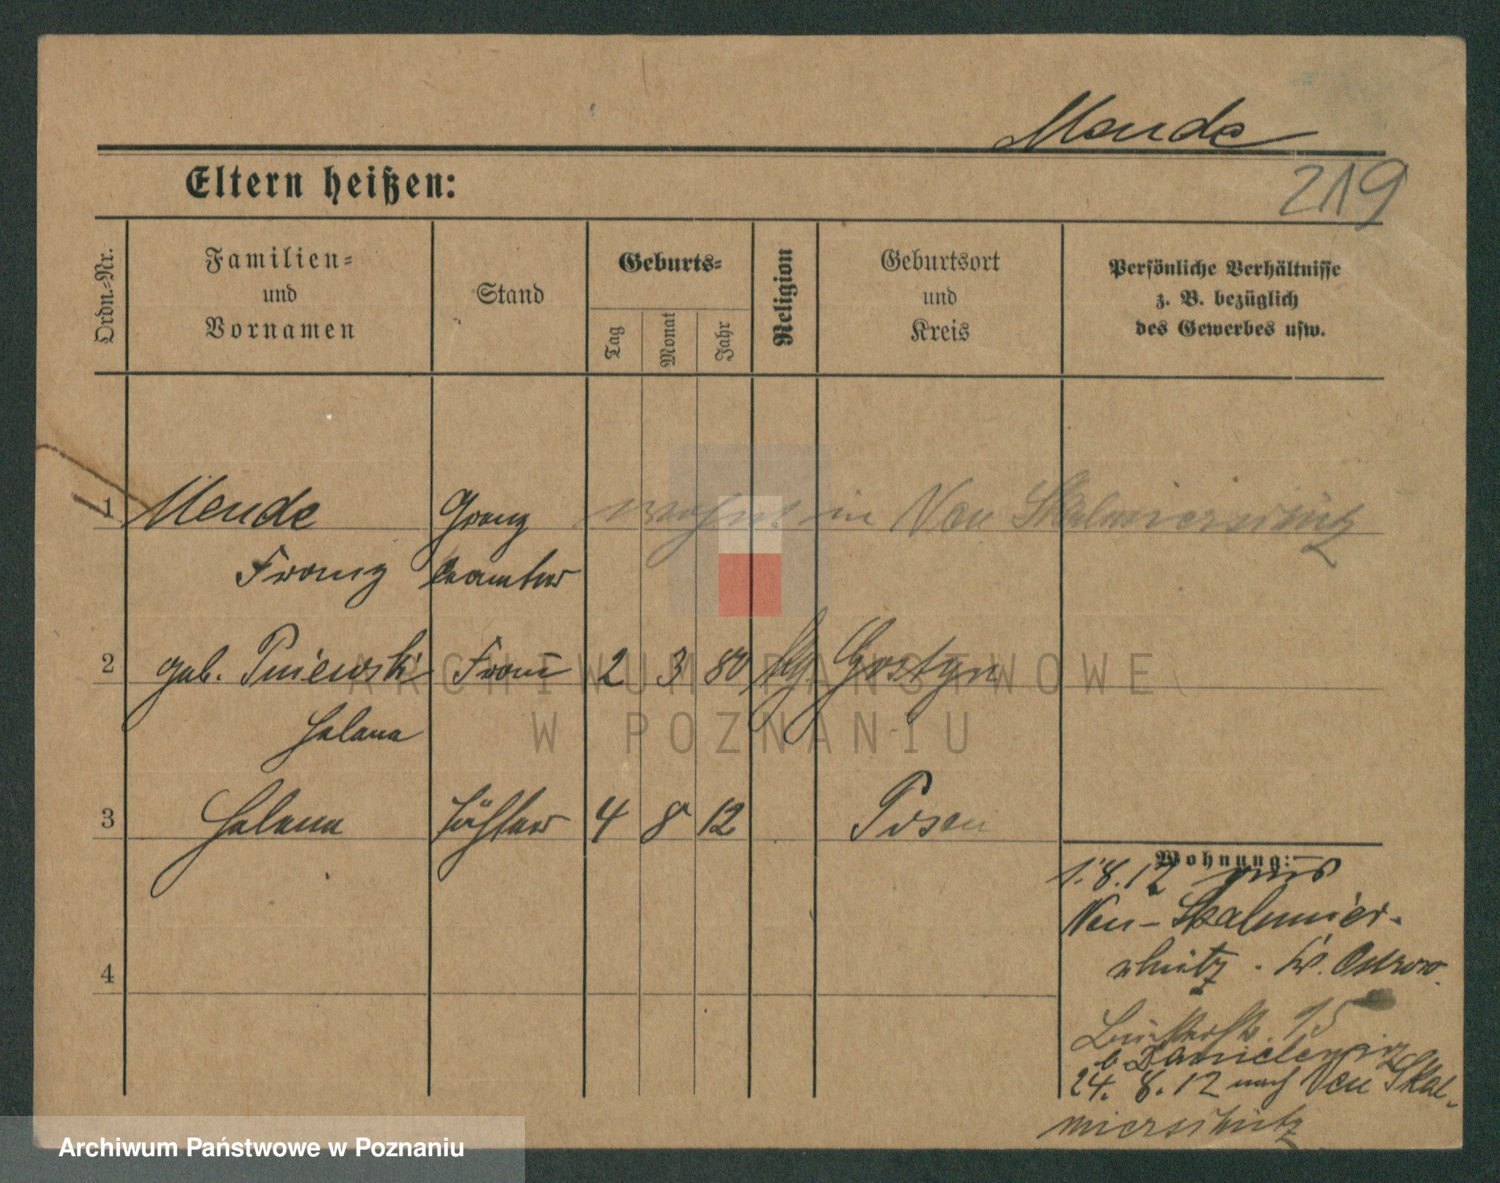 Mende
219
Eltern heißen:
Ordn.-Nr.
Familien-
und
Vornamen
Stand
Geburts-
Tag
Monat
Jahr
Religion
Geburtsort
und
Kreis
Persönliche Verhältnisse
z. B. bezüglich
des Gewerbes usw.
1 Mende Grenz wohnt in Neu Skalmierschütz
Franz beamter
2 geb. Pniewski Frau 2 3 80 kg Gostyn
Helena
3 Helena Tochter 4 8 12 Posen
4
Wohnung:
1.8.12 aus
Neu-Skalmier-
schütz. Kr. Ostrow.
15
b Danielewicz
24. 8. 12 nach Neu Skal-
mierschütz
ARCHIWUM PAŃSTWOWE
W POZNANIU
Archiwum Państwowe w Poznaniu